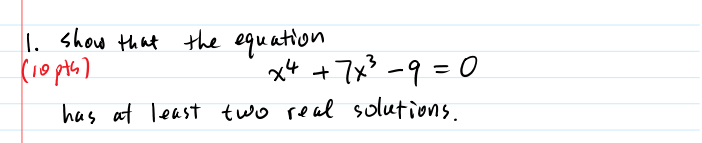 1. show that the equation
(10 pts) x⁴ + 7x³ - 9 = 0
has at least two real solutions.